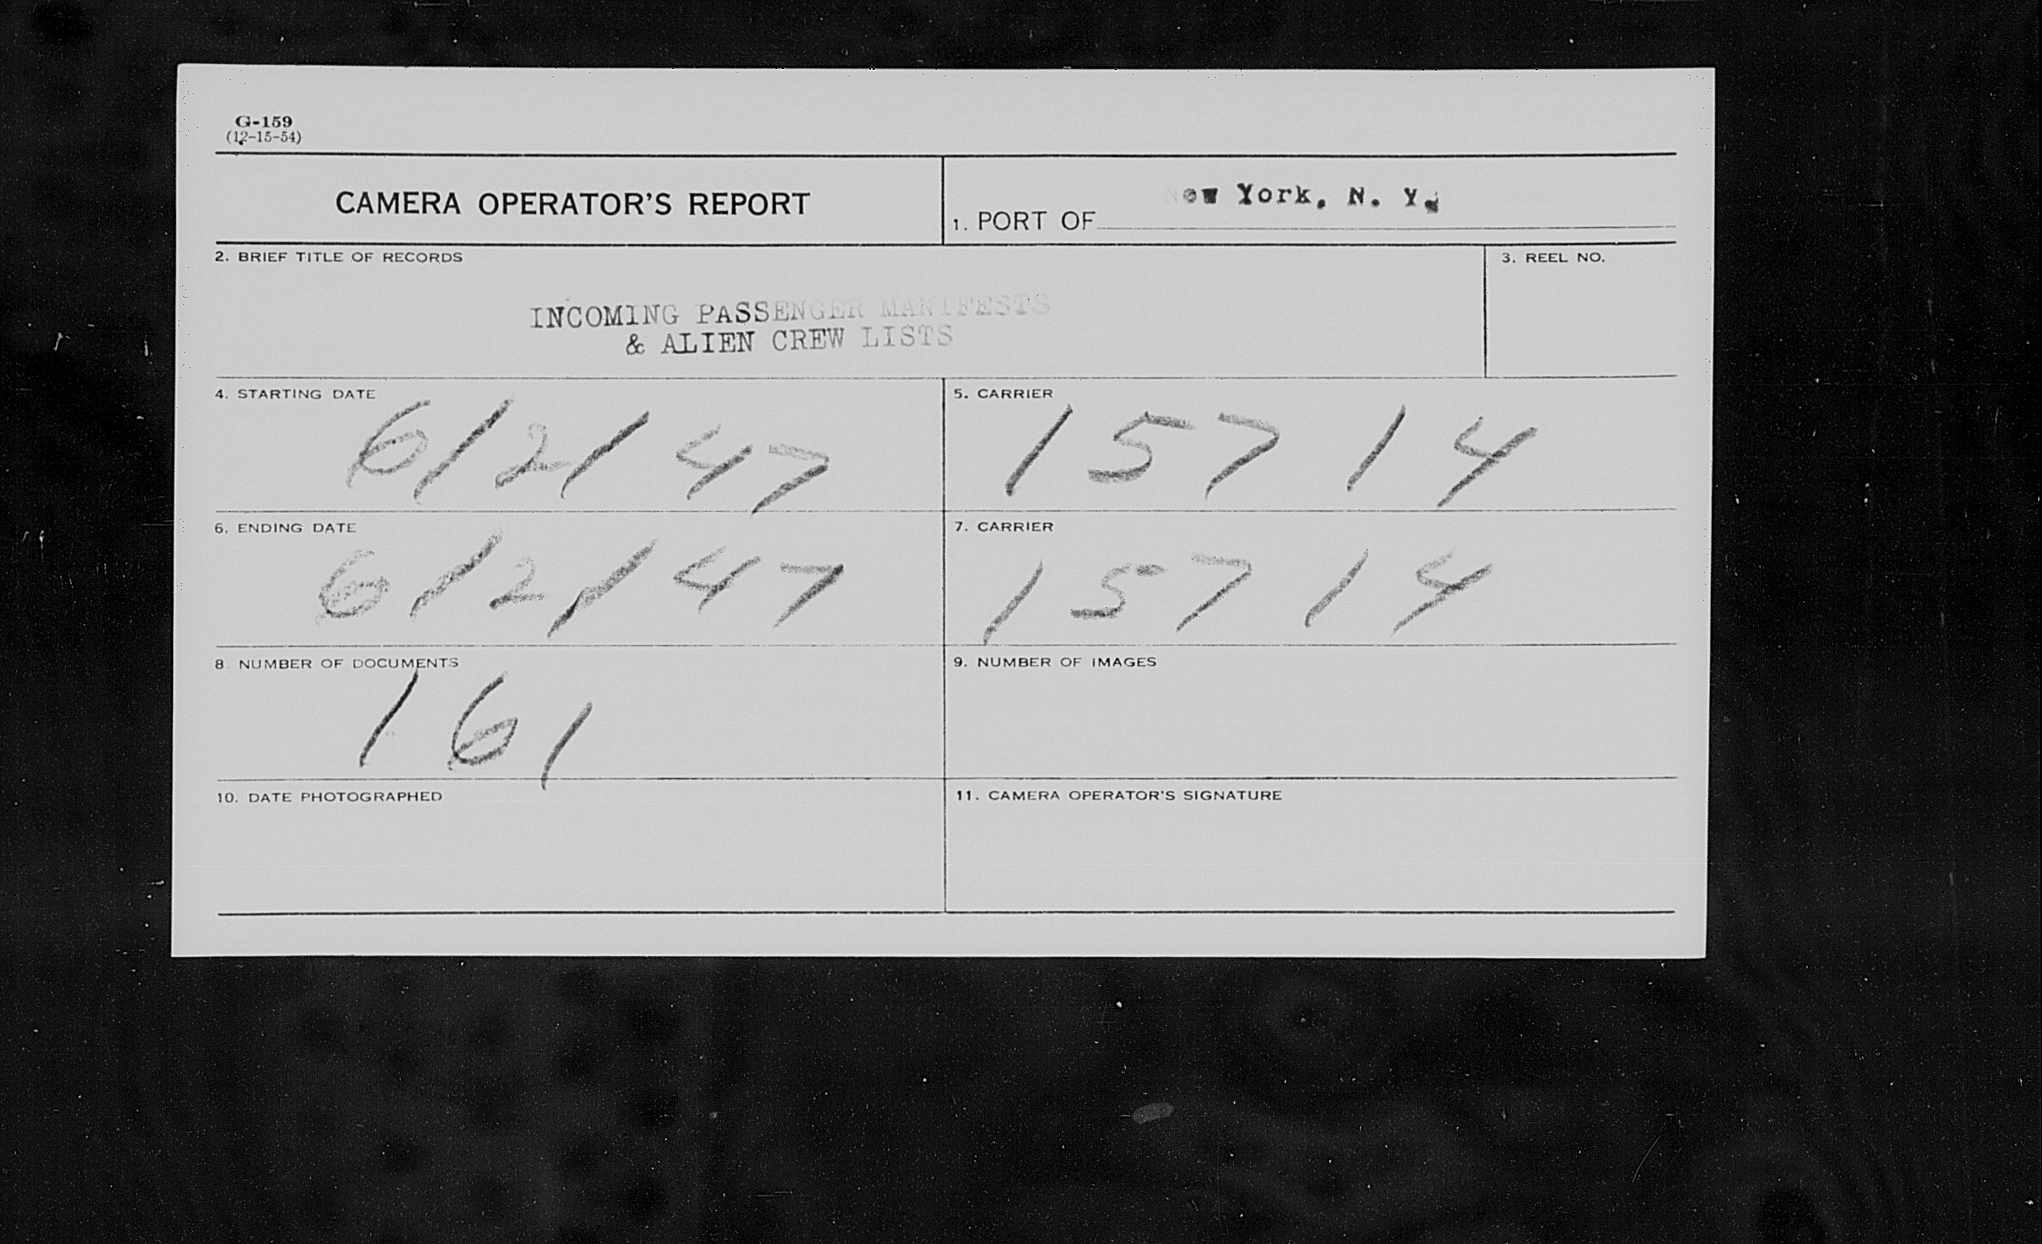 G-159
(12-15-54)
CAMERA OPERATOR'S REPORT
1. PORT OF New York, N. Y.
2. BRIEF TITLE OF RECORDS
3. REEL NO.
INCOMING PASSENGER MANIFESTS
& ALIEN CREW LISTS
4. STARTING DATE
6/2/47
5. CARRIER
15714
6. ENDING DATE
6/2/47
7. CARRIER
15714
8. NUMBER OF DOCUMENTS
161
9. NUMBER OF IMAGES
10. DATE PHOTOGRAPHED
11. CAMERA OPERATOR'S SIGNATURE